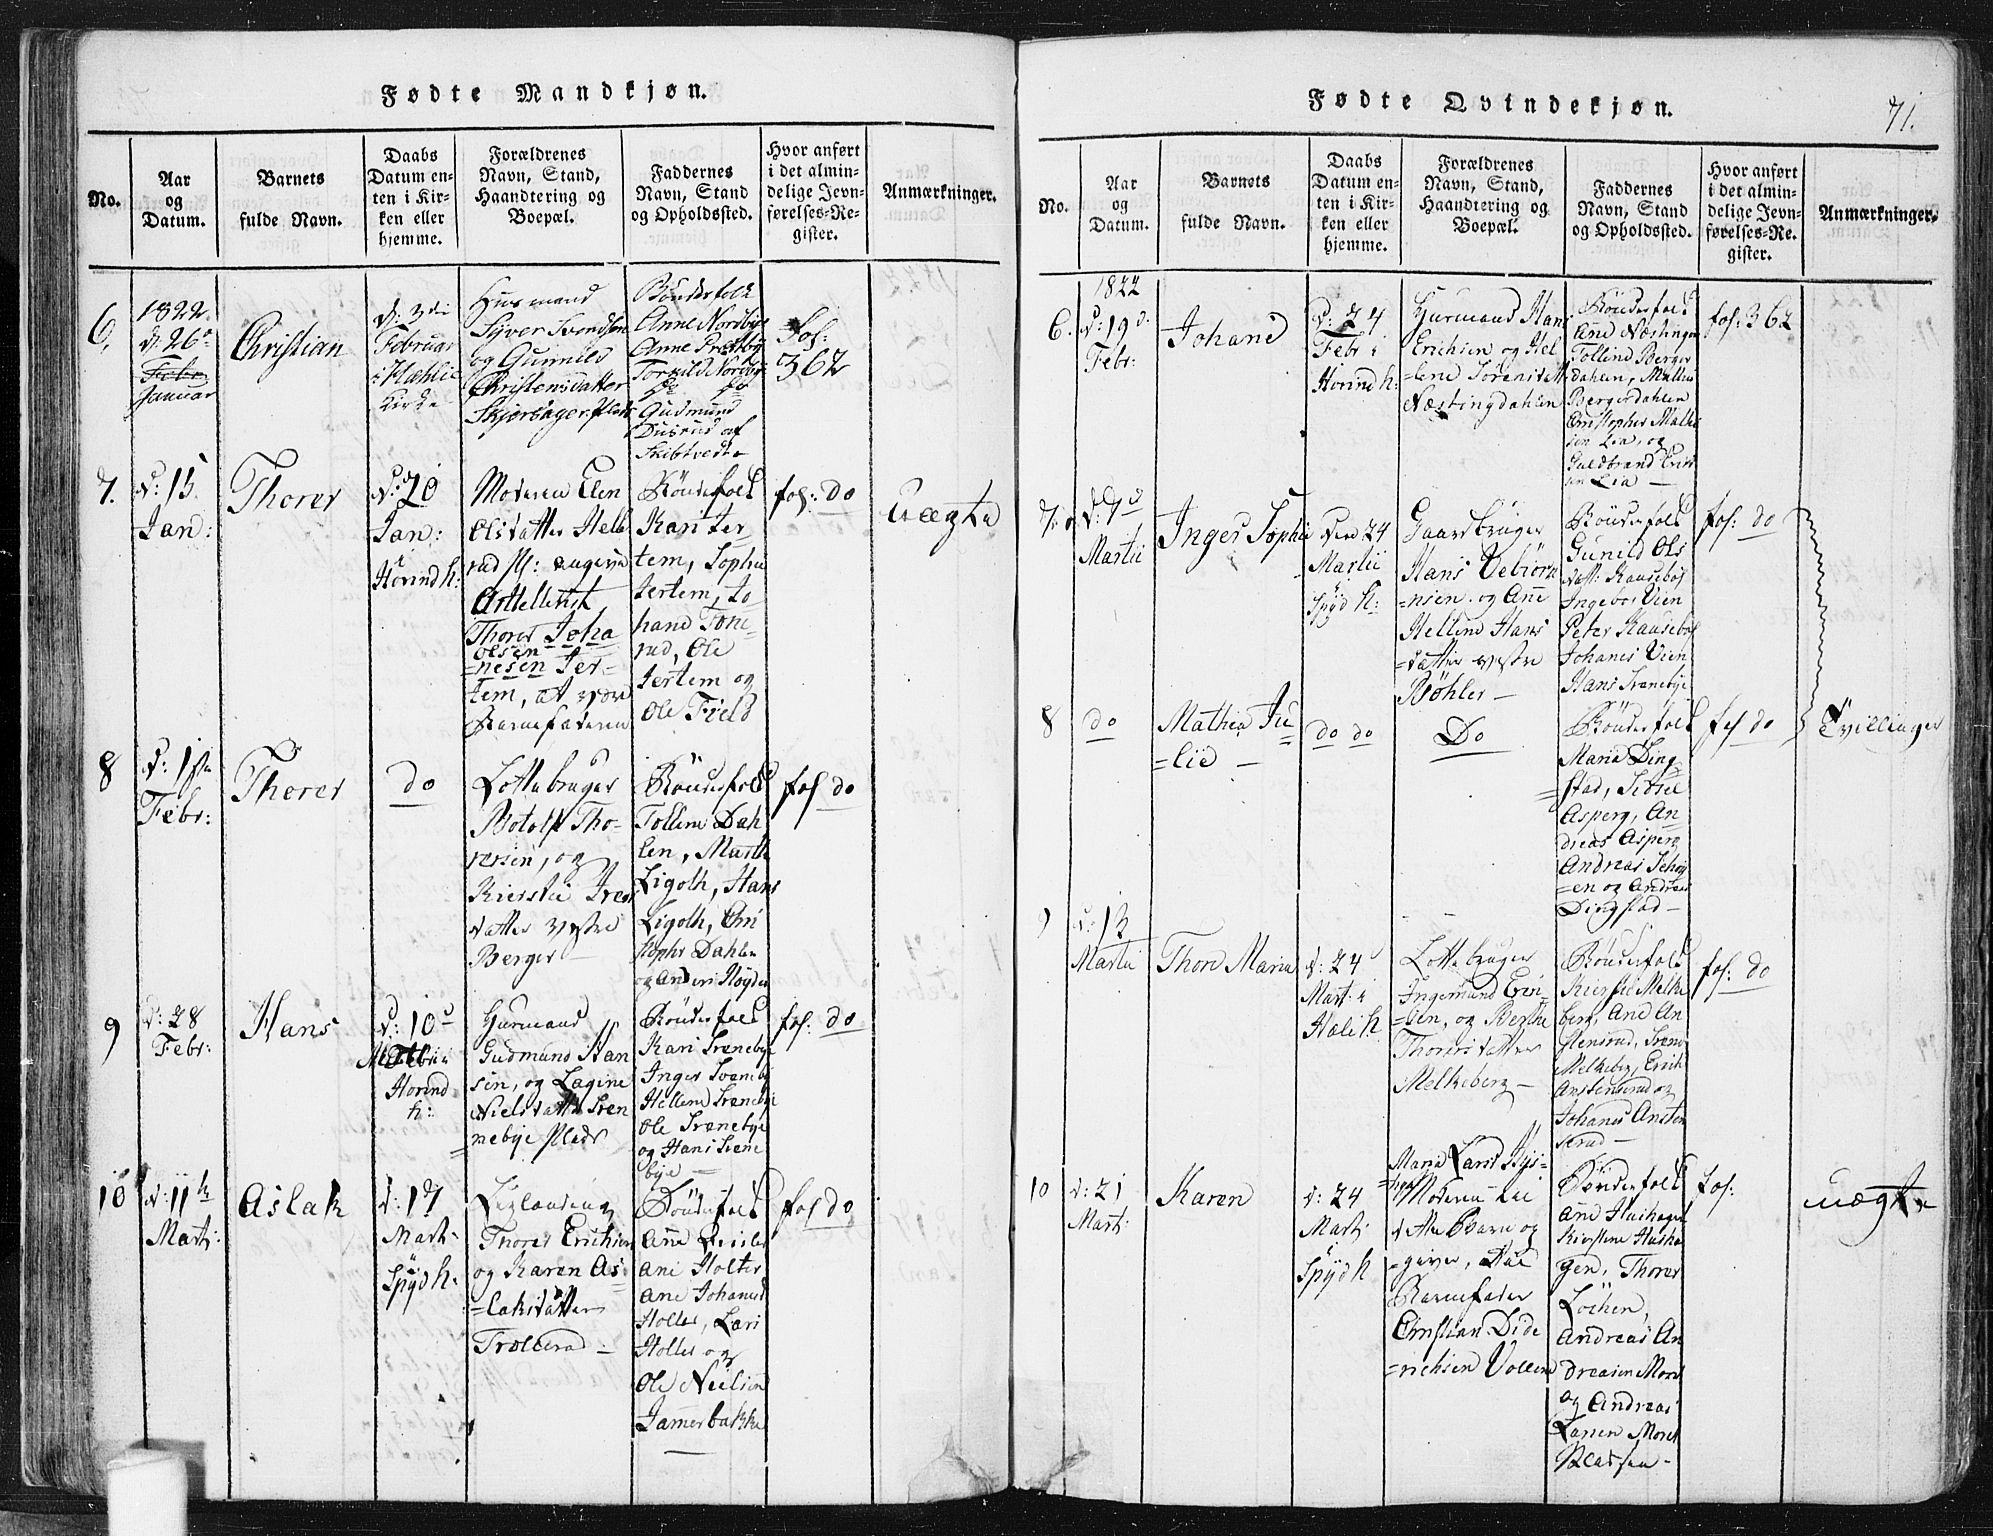 Fødte Mandkjøn.
No.
Aar
og
Datum.
Barnets
fulde Navn.
Daabs
Datum en-
ten i Kir-
ken eller
hjemme.
Forældrenes
Navn, Stand,
Haandtering og
Boepæl.
Faddernes
Navn, Stand
og Opholdssted.
Hvor anført
i det almin-
delige Jevn-
førelses-Re-
gister.
Anmærkninger.
6.
1822.
d. 26
Febr.
Januar
Christian
d: 3die
Februar
Kirke
Huusmand
Syver Svendsen
og Gunnild
Christensdatter
Bönderfolk
Anne Nordbye
Gudmund
Dusrud af
Skibtvedt
fol:
362
7.
d: 15
Jan:
Thorer
d: 20
Jan:
Hovind k:
Moderen Elen
Olsdatter
angiver
Thorer Joha
olsen
=nesen Jer-
tem, at være
Barnefaderen
Bönderfolk
Kari Jer-
tem, Sophie
Jertem, Jo-
rud, Ole
Jertem og
Ole Field
fol: do
Uægte
8
d: 1ste
Febr:
Thorer
do
Lottebruger
Botolf Tho-
resen, og
Kierstie
datter vestre
Berger
Bönderfolk
Tolline Dah-
len, Marthe
Ligolh, Hans
Ligolh, Chri
stopher Dahlen
og Anders Høyden
fol do
9
d: 28
Febr:
Hans
d: 10
Hovind
k:
Huusmand
Gudmund Han
sen, og Lagine
Nielsdatter Sven
=nebye Plads
Bönderfolk
Kari Svenebye
Inger Svenebye
Hellene Svenebye
Ole Svenebye
og Hans Svene
bye
fol: do
10
d: 11te
Marti:
Aslak
d: 17
Mart:
Spyd k:
Thorer Erichsen
og Karen As-
=laksdatter
Trollerud
Bönderfolk
Ane
Ane Holter
Ane Johannes
Holter, Lars
Holter og
Ole Nielsen
Jamerbakke
fol do
Fødte Qvindekjøn.
71.
No.
Aar
og
Datum.
Barnets
fulde Navn.
Daabs
Datum en-
ten i Kir-
ken eller
hjemme.
Forældrenes
Navn, Stand,
Haandtering og
Boepæl.
Faddernes
Navn, Stand
og Opholdssted.
Hvor anført
i det almin-
delige Jevn-
førelses-Re-
gister.
Anmærkninger.
1822
6.
d: 19
Febr:
Johane
d: 24
Febr i
Hovind k:
Huusmand Hans
Erichsen og Hel
=lene Sörensdatt
Næstingdahlen
Bönderfolk
Ane Næstingen
Tolline Berger
dahlen, Mallus
Bergerdahlen
Christopher
sen Lia, og
Guldbrand Erich
sen Lia
fol: 362
7.
Martii
Inger Sophie
d: 24
Martii
Spyd k:
Gaardbruger
Hans Vebiörn
=nsen og Ane
Helline Hans
datter vestre
Böhler
Bönderfolk
Gunild Ols
datt: Kausebøl
Ingebor Vien
Peter Kausebøl
Johannes Vien
Hans Svenebye
fol: do
8
do
Mathia Ju
=lie
do do
Do
Bönderfolk
Maria Ding
=stad, Sidsel
Asperg, An
dreas Asperg
Andreas
=en og Andreas
Dingstad
fol do
Tvillinger
9
d: 13
Martii
Thore Maria
d: 24
Mart: i
Heli k
Lottebruger
Ingemund Eri-
=sen, og Berthe
Thorersdatter
Melkeberg
Bönderfolk
Kierstie Melke
berg, Ane An
stensrud, Svend
Melkeberg, Erich
Anstensrud og
Johannes Ansten
srud
fol: do
10
d: 21
Mart:
Karen
d: 24
Mart:
Spyd k
Maria Lars
Moderen
dette Barn og
=giver, som
Barnefader
Christian Dide
=richsen Vollene
Bönderfolk
Ane Hushagen
Kirstine Husha
gen, Thorer
Løchen,
Andreas An
dreasen Moer
og Andreas
Larsen Moer
Pladsen
fol:
uægte